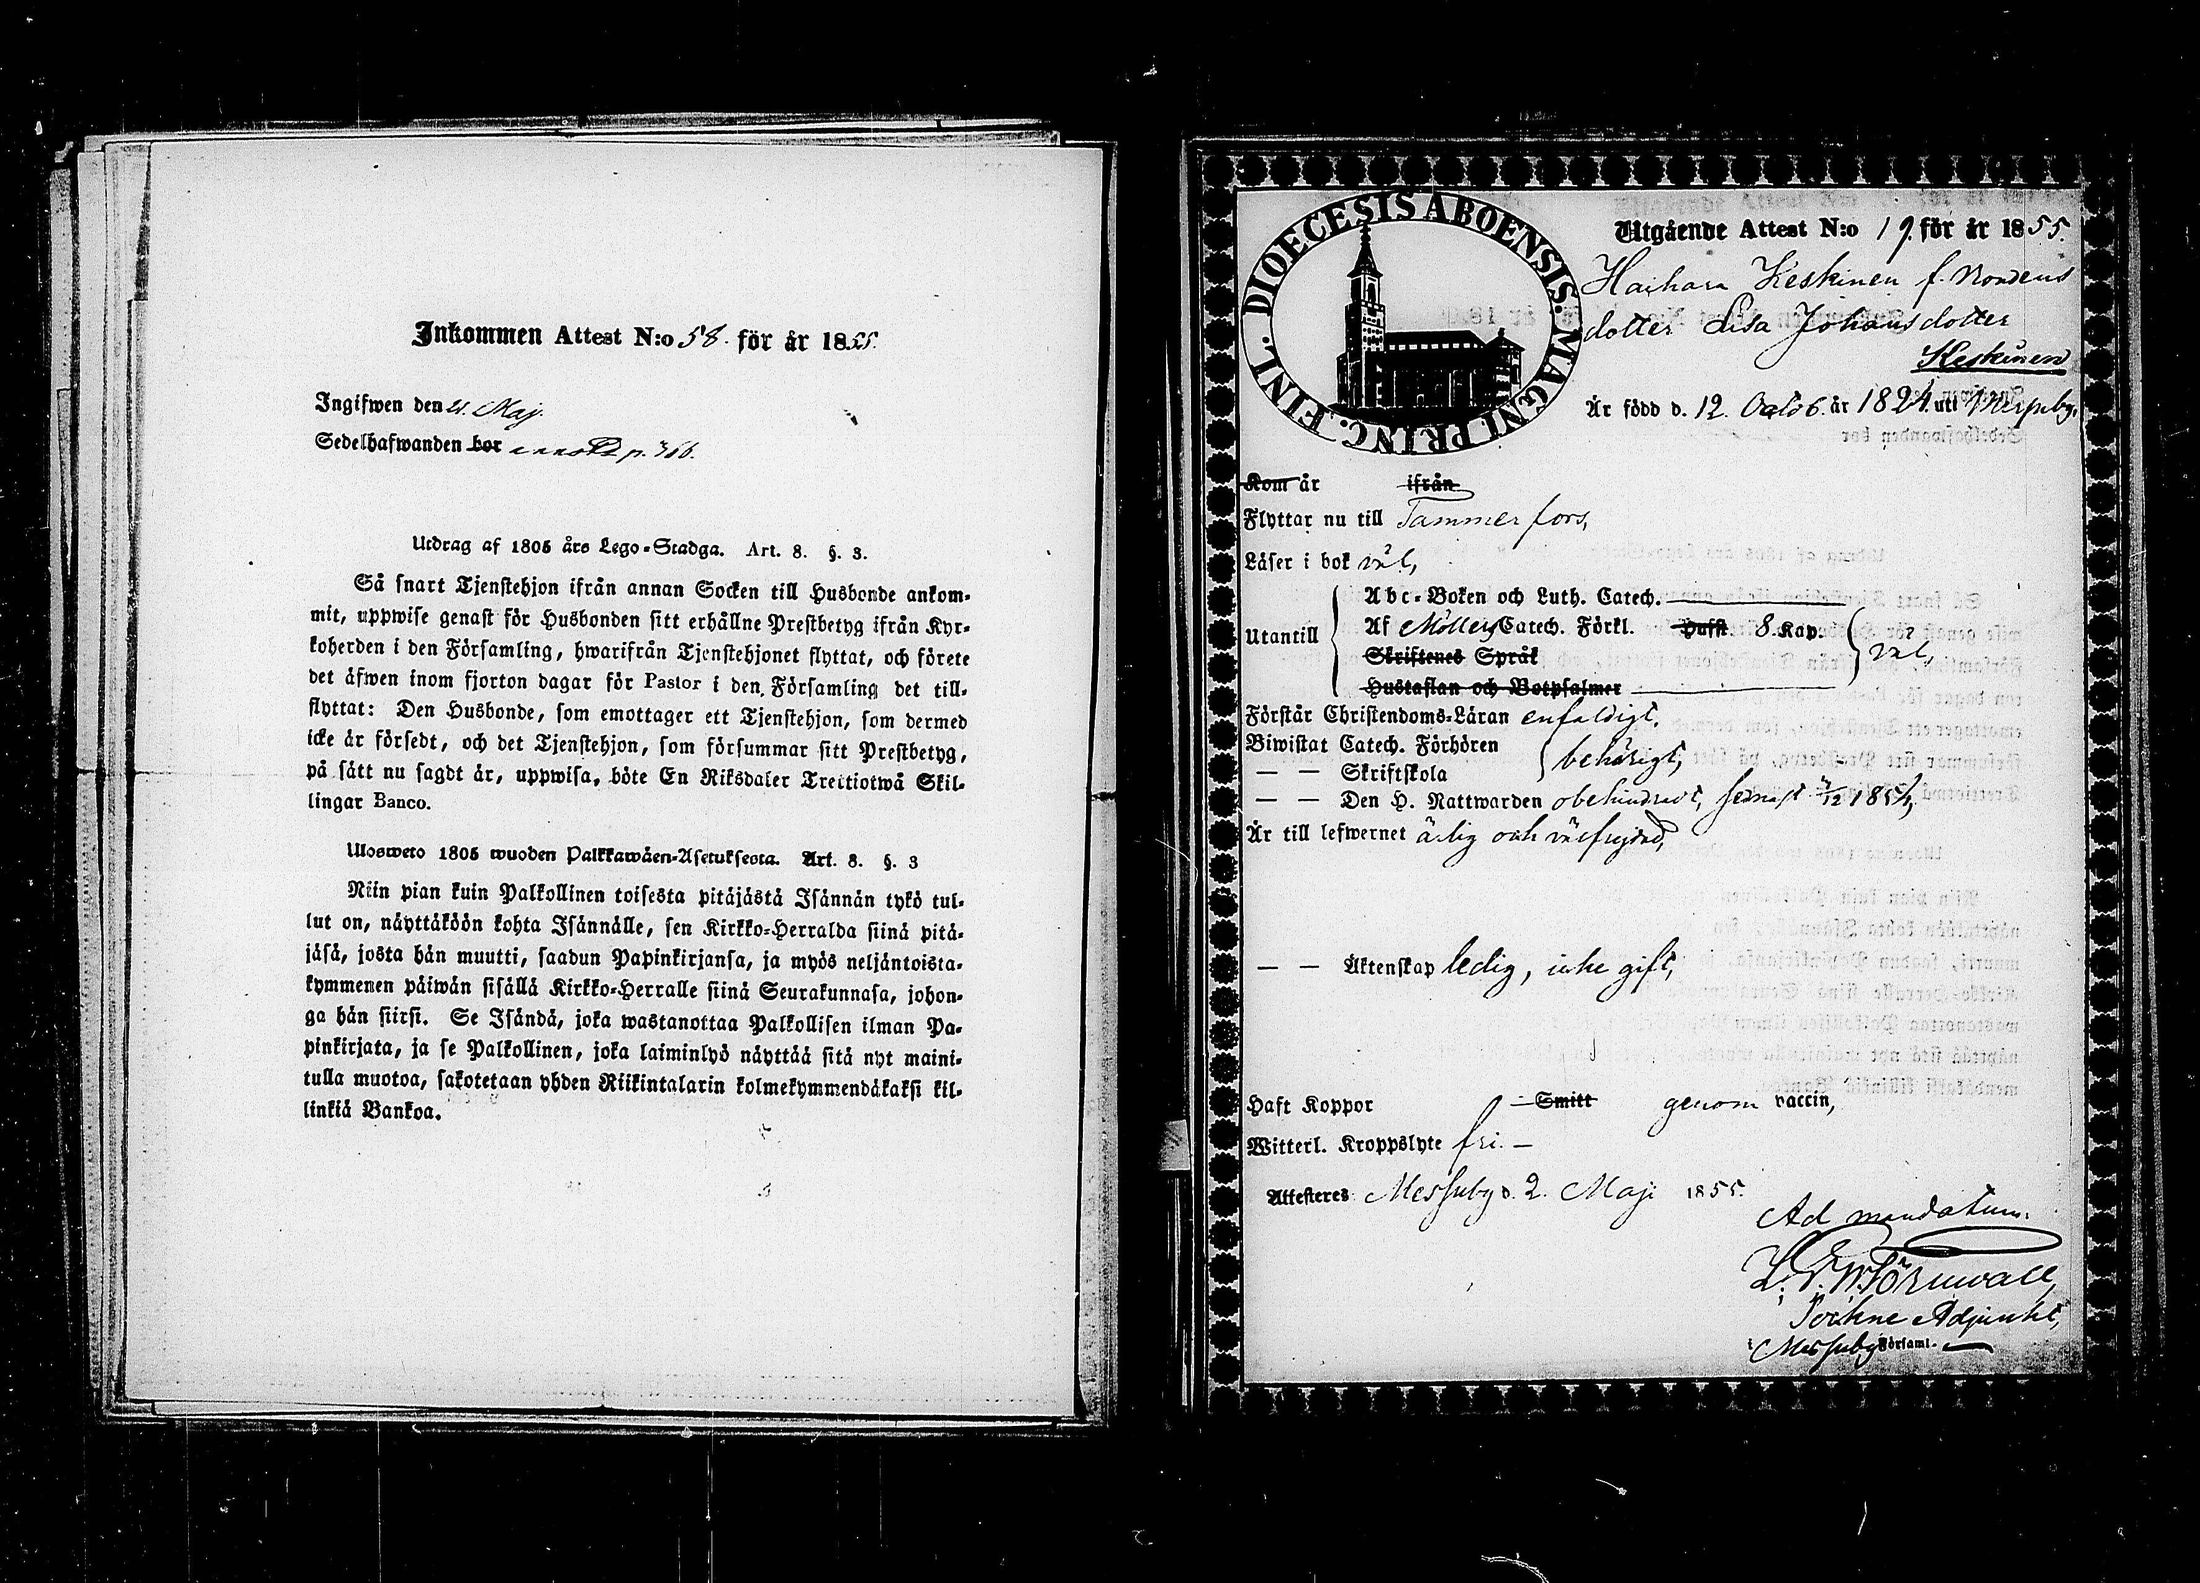 Inkommen Attest N:o 58. för år 1855.
Ingifwen den 21. Maj.
Sedelhafwanden bor p. 366.
Utdrag af 1805 års Lego-Stadga. Art. 8. §. 3.
Så snart Tjenstehjon ifrån annan Socken till Husbonde ankom-
mit, uppwise genast för Husbonden sitt erhållne Prestbetyg ifrån Kyr-
koherden i den Församling, hwarifrån Tjenstehjonet flyttat, och förete
det äfwen inom fjorton dagar för Pastor i den Församling det till-
flyttat: Den Husbonde, som emottager ett Tjenstehjon, som dermed
icke är försedt, och det Tjenstehjon, som försummar sitt Prestbetyg,
på sätt nu sagdt är, uppwisa, böte En Riksdaler Trettiotwå Skil-
lingar Banco.
Ulosweto 1805 wuoden Palkkawäen-Asetuksesta. Art. 8. §. 3
Niin pian kuin Palkollinen toisesta pitäjästä Isännän tykö tul-
lut on, näyttäköön kohta Isännälle, sen Kirkko-Herralda siinä pitä-
jäsä, josta hän muutti, saadun Papinkirjansa, ja myös neljäntoista-
kymmenen päiwän sisällä Kirkko-Herralle siinä Seurakunnasa, johon-
ga hän siirsi. Se Isändä, joka wastanottaa Palkollisen ilman Pa-
pinkirjata, ja se Palkollinen, joka laiminlyö näyttää sitä nyt maini-
tulla muotoa, sakotetaan yhden Riikintalarin kolmekymmendäkaksi kil-
linkiä Bankoa.
DIOECESIS ABOENSIS. MAGNI PRINC. FINL.
Utgående Attest N:o 19. för år 1855.
Haihara Keskinen f.
dotter Lisa Johansdotter
Keskinen
Är född d. 12. Octob. år 1824. uti Messuby,
Kom år ifrån
Flyttar nu till Tammerfors,
Läser i bok väl,
Utantill
Abc-Boken och Luth. Catech.
Af Möllers Catech. Förkl. Hufst. 8. Kap.
Skriftenes Språk
väl,
Hustaflan och Botpsalmer
Förstår Christendoms-Läran enfaldigt.
Biwistat Catech. Förhören
behörigt,
— — Skriftskola
— — Den H. Nattwarden obehindradt, sednast /12 1854,
Är till lefwernet ärlig och välfrejdad,
— — Äktenskap ledig, icke gift,
Haft Koppor Smitt genom vaccin,
Witterl. Kroppslyte fri. —
Attesteres Messuby d. 2. Maji 1855.
Ad mandatum.
Törnwall,
Sockne Adjunkt,
i Messuby Församl.